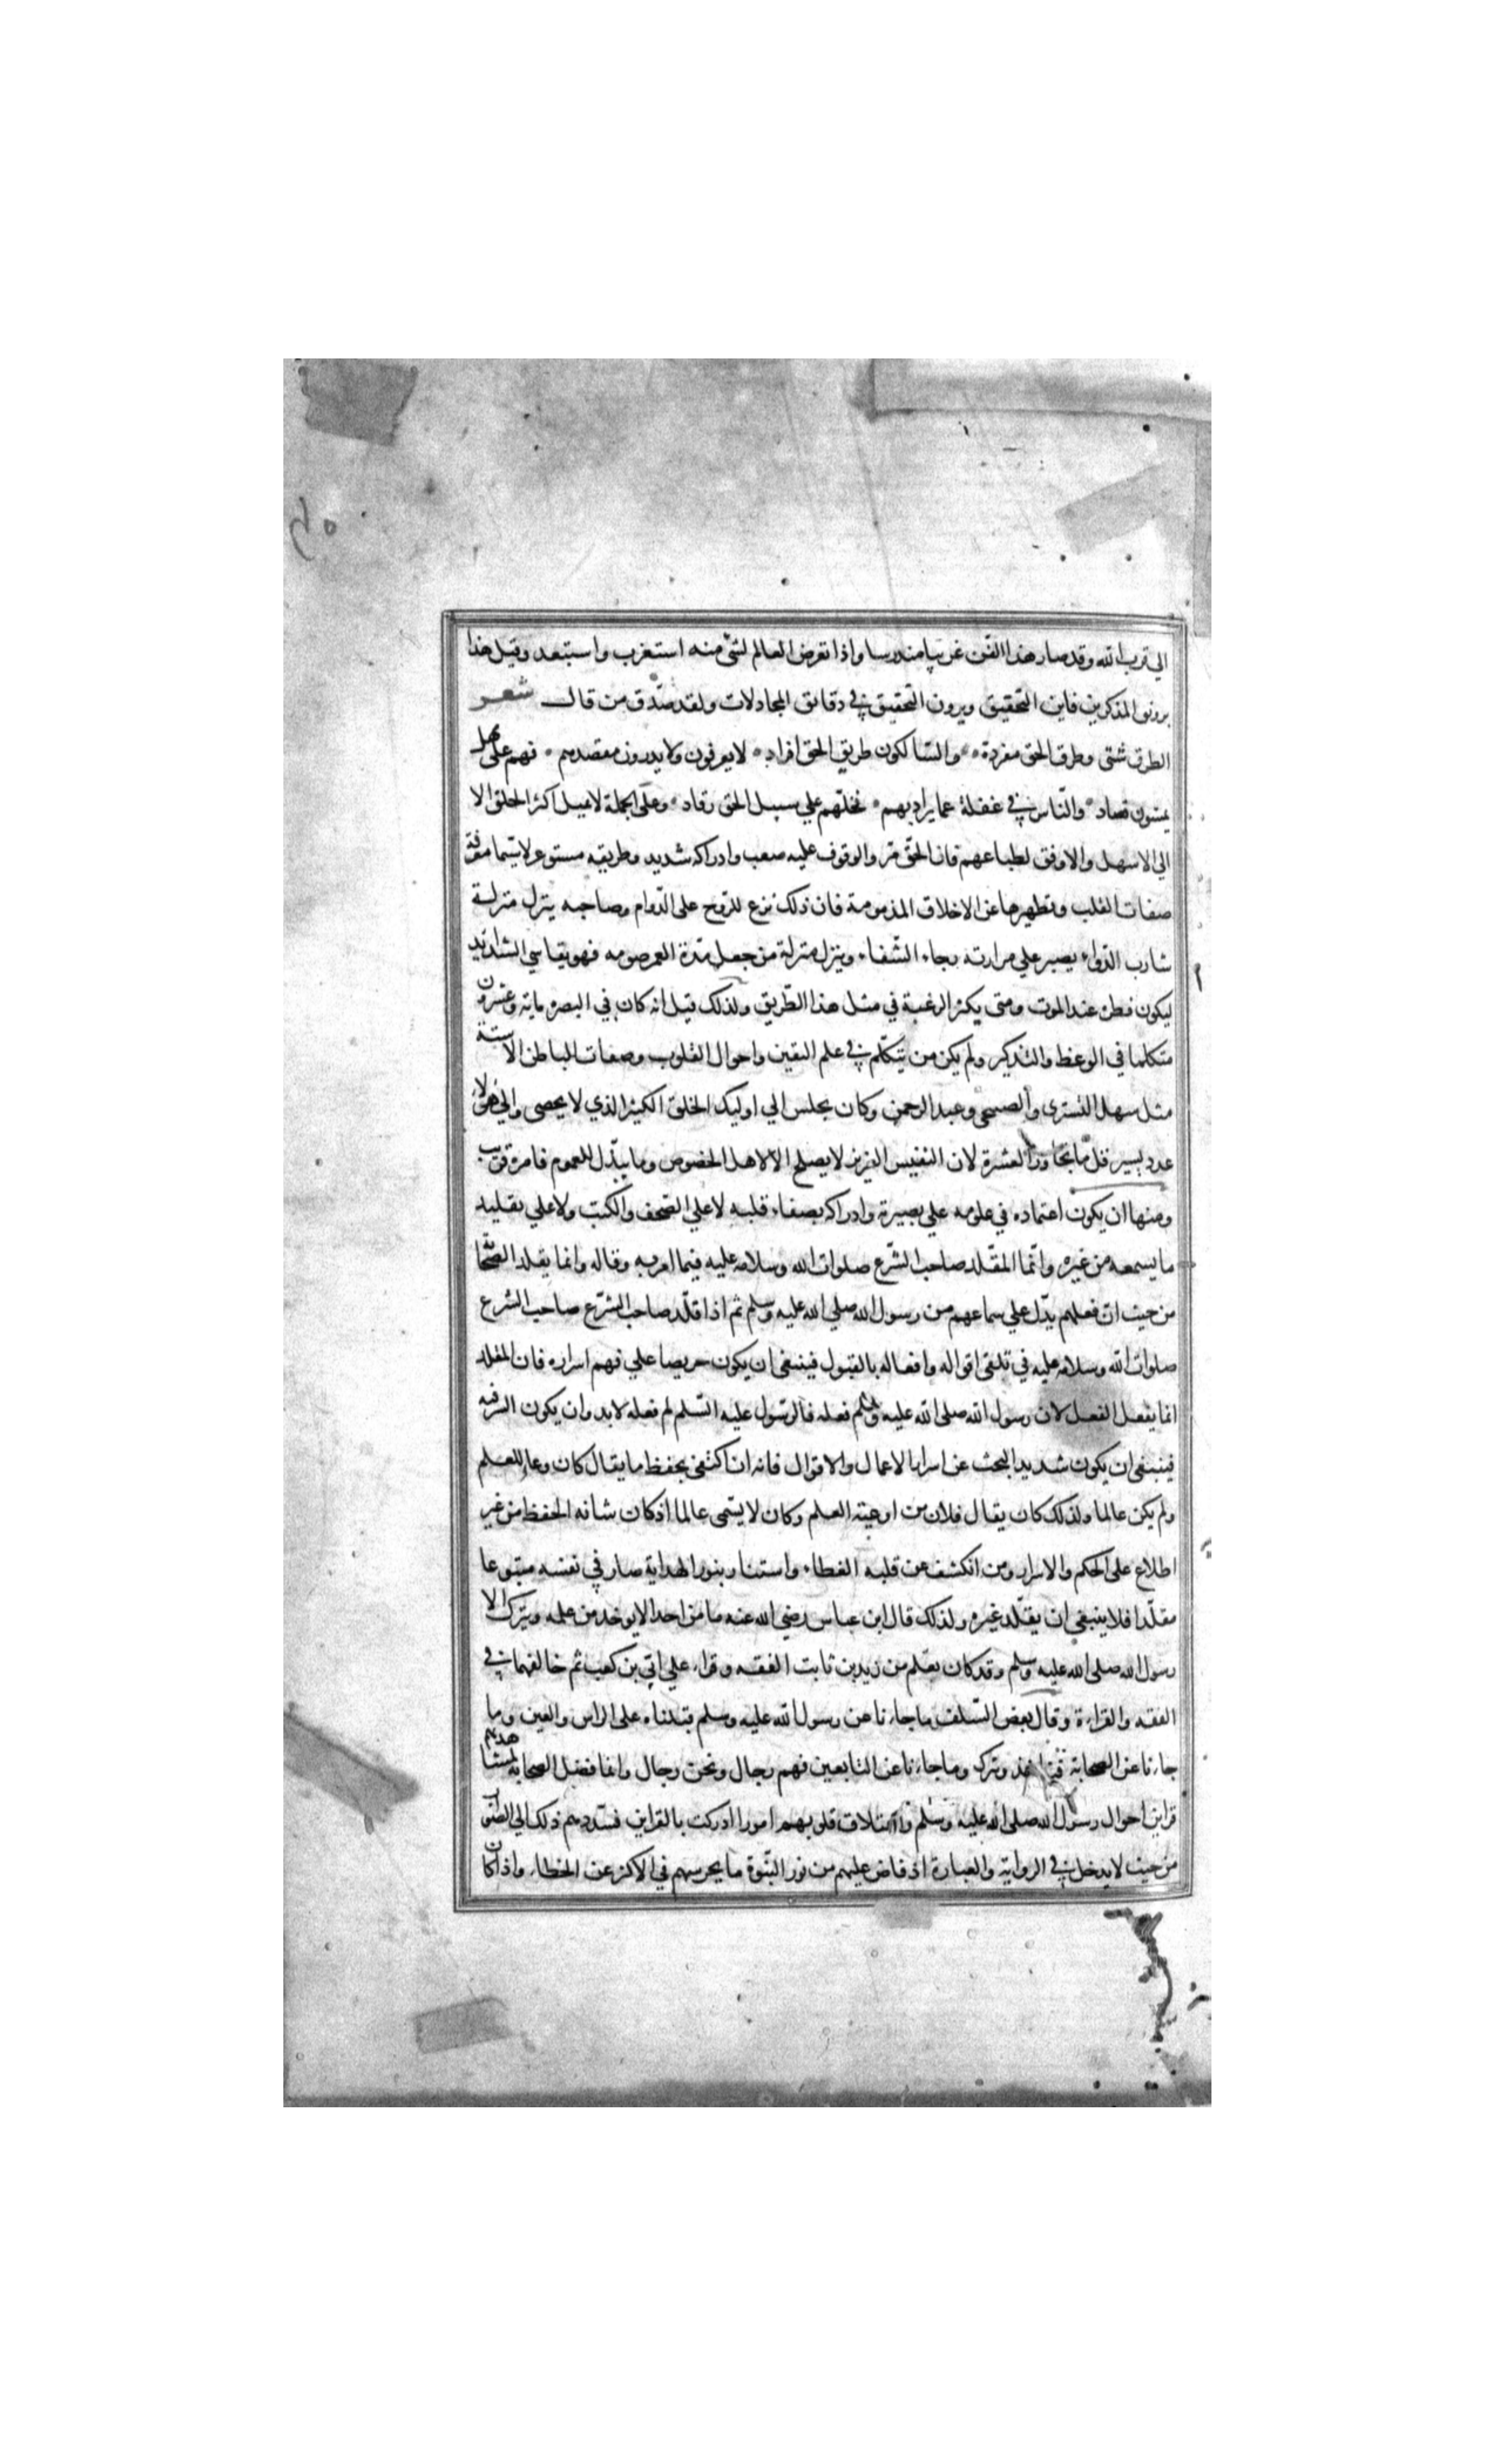 الي قرب الله وقد صار هذا الفن غريبا مندرسا واذا تعرض العالم لشئ منه استغرب واستبعد وقيل هذا
برونق المذكرين فاين التحقيق ويرون التحقيق في دقايق المجادلات ولقد صدق من قال شعر
الطرق شتى وطرق الحق مفردة والسالكون طريق الحق افراد لا يعرفون ولا يدرون مقصدهم فهم على مهل
يمشون قصاد والناس في غفلة عما يراد بهم فجلهم علي سبيل الحق رقاد وعلى الجملة لا يميل اكثر الخلق الا
الي الاسهل والاوفق لطباعهم فان الحق مر والوقوف عليه صعب وادراكه شديد وطريقه مستوعر لا سيما معرفة
صفات القلب وتطهيرها عن الاخلاق المذمومة فان ذلك نزع للروح على الدوام وصاحبه ينزل منزلة
شارب الدواء يصبر علي مرارته رجاء الشفاء وينزل منزلة من جعل مدة العمر صومه فهو يقاسي الشدايد
ليكون فطره عند الموت ومتى يكثر الرغبة في مثل هذا الطريق ولذلك قيل انه كان في البصرة ماية وعشرون
متكلما في الوعظ والتذكير ولم يكن من يتكلم في علم اليقين واحوال القلوب وصفات الباطن الا ستة
مثل سهل التستري والصبيحي وعبد الرحمن وكان يجلس الي اوليك الخلق الكثير الذي لا يحصى والي هولا
عدد يسير قل ما يتجاوز العشرة لان النفيس العزيز لا يصلح الا لاهل الخصوص وما يبذل للعموم فامره قريب
ومنها ان يكون اعتماده في علومه علي بصيرته وادراكه بصفاء قلبه لا علي الصحف والكتب ولا علي تقليد
ما يسمعه من غيره وانما المقلد صاحب الشرع صلوات الله وسلامه عليه فيما امر به وقاله وانما يقلد الصحابة
من حيث ان فعلهم يدل علي سماعهم من رسول الله صلي الله عليه وسلم ثم اذا قلد صاحب الشرع صاحب الشرع
صلوات الله وسلامه عليه في تلقى اقواله وافعاله بالقبول فينبغي ان يكون حريصا علي فهم اسراره فان المقلد
انما يفعل الفعل لان رسول الله صلى الله عليه وسلم فعله فالرسول عليه السلم لم فعله لابد وان يكون السر فيه
فينبغي ان يكون شديد البحث عن اسرار الاعمال والاقوال فانه ان اكتفى بحفظ ما يقال كان وعاء للعلم
ولم يكن عالما ولذلك كان يقال فلان من اوعية العلم وكان لا يسمى عالما اذ كان شانه الحفظ من غير
اطلاع على الحكم والاسرار ومن انكشف عن قلبه الغطاء واستنار بنور الهداية صار في نفسه متبوعا
مقلدا فلا ينبغي ان يقلد غيره ولذلك قال ابن عباس رضي الله عنه ما من احد الا يوخذ من علمه ويترك الا
رسول الله صلى الله عليه وسلم وقد كان تعلم من زيد بن ثابت الفقه وقراء علي ابي بن كعب ثم خالفهما في
الفقه والقراءة وقال بعض السلف ما جاءنا عن رسول الله عليه وسلم قبلناه على الراس والعين وما
جاءنا عن الصحابة وترك وما جاءنا عن التابعين فهم رجال ونحن رجال وانما فضل الصحابة لمشاهدتهم
قراين احوال رسول الله صلى الله عليه وسلم واعتلاق قلوبهم امورا ادركت بالقراين فسددهم ذلك الي الصواب
من حيث لا يدخل في الرواية والعبارة اذ فاض عليهم من نور النبوة ما يحرسهم في الاكثر عن الخطاء واذا كان